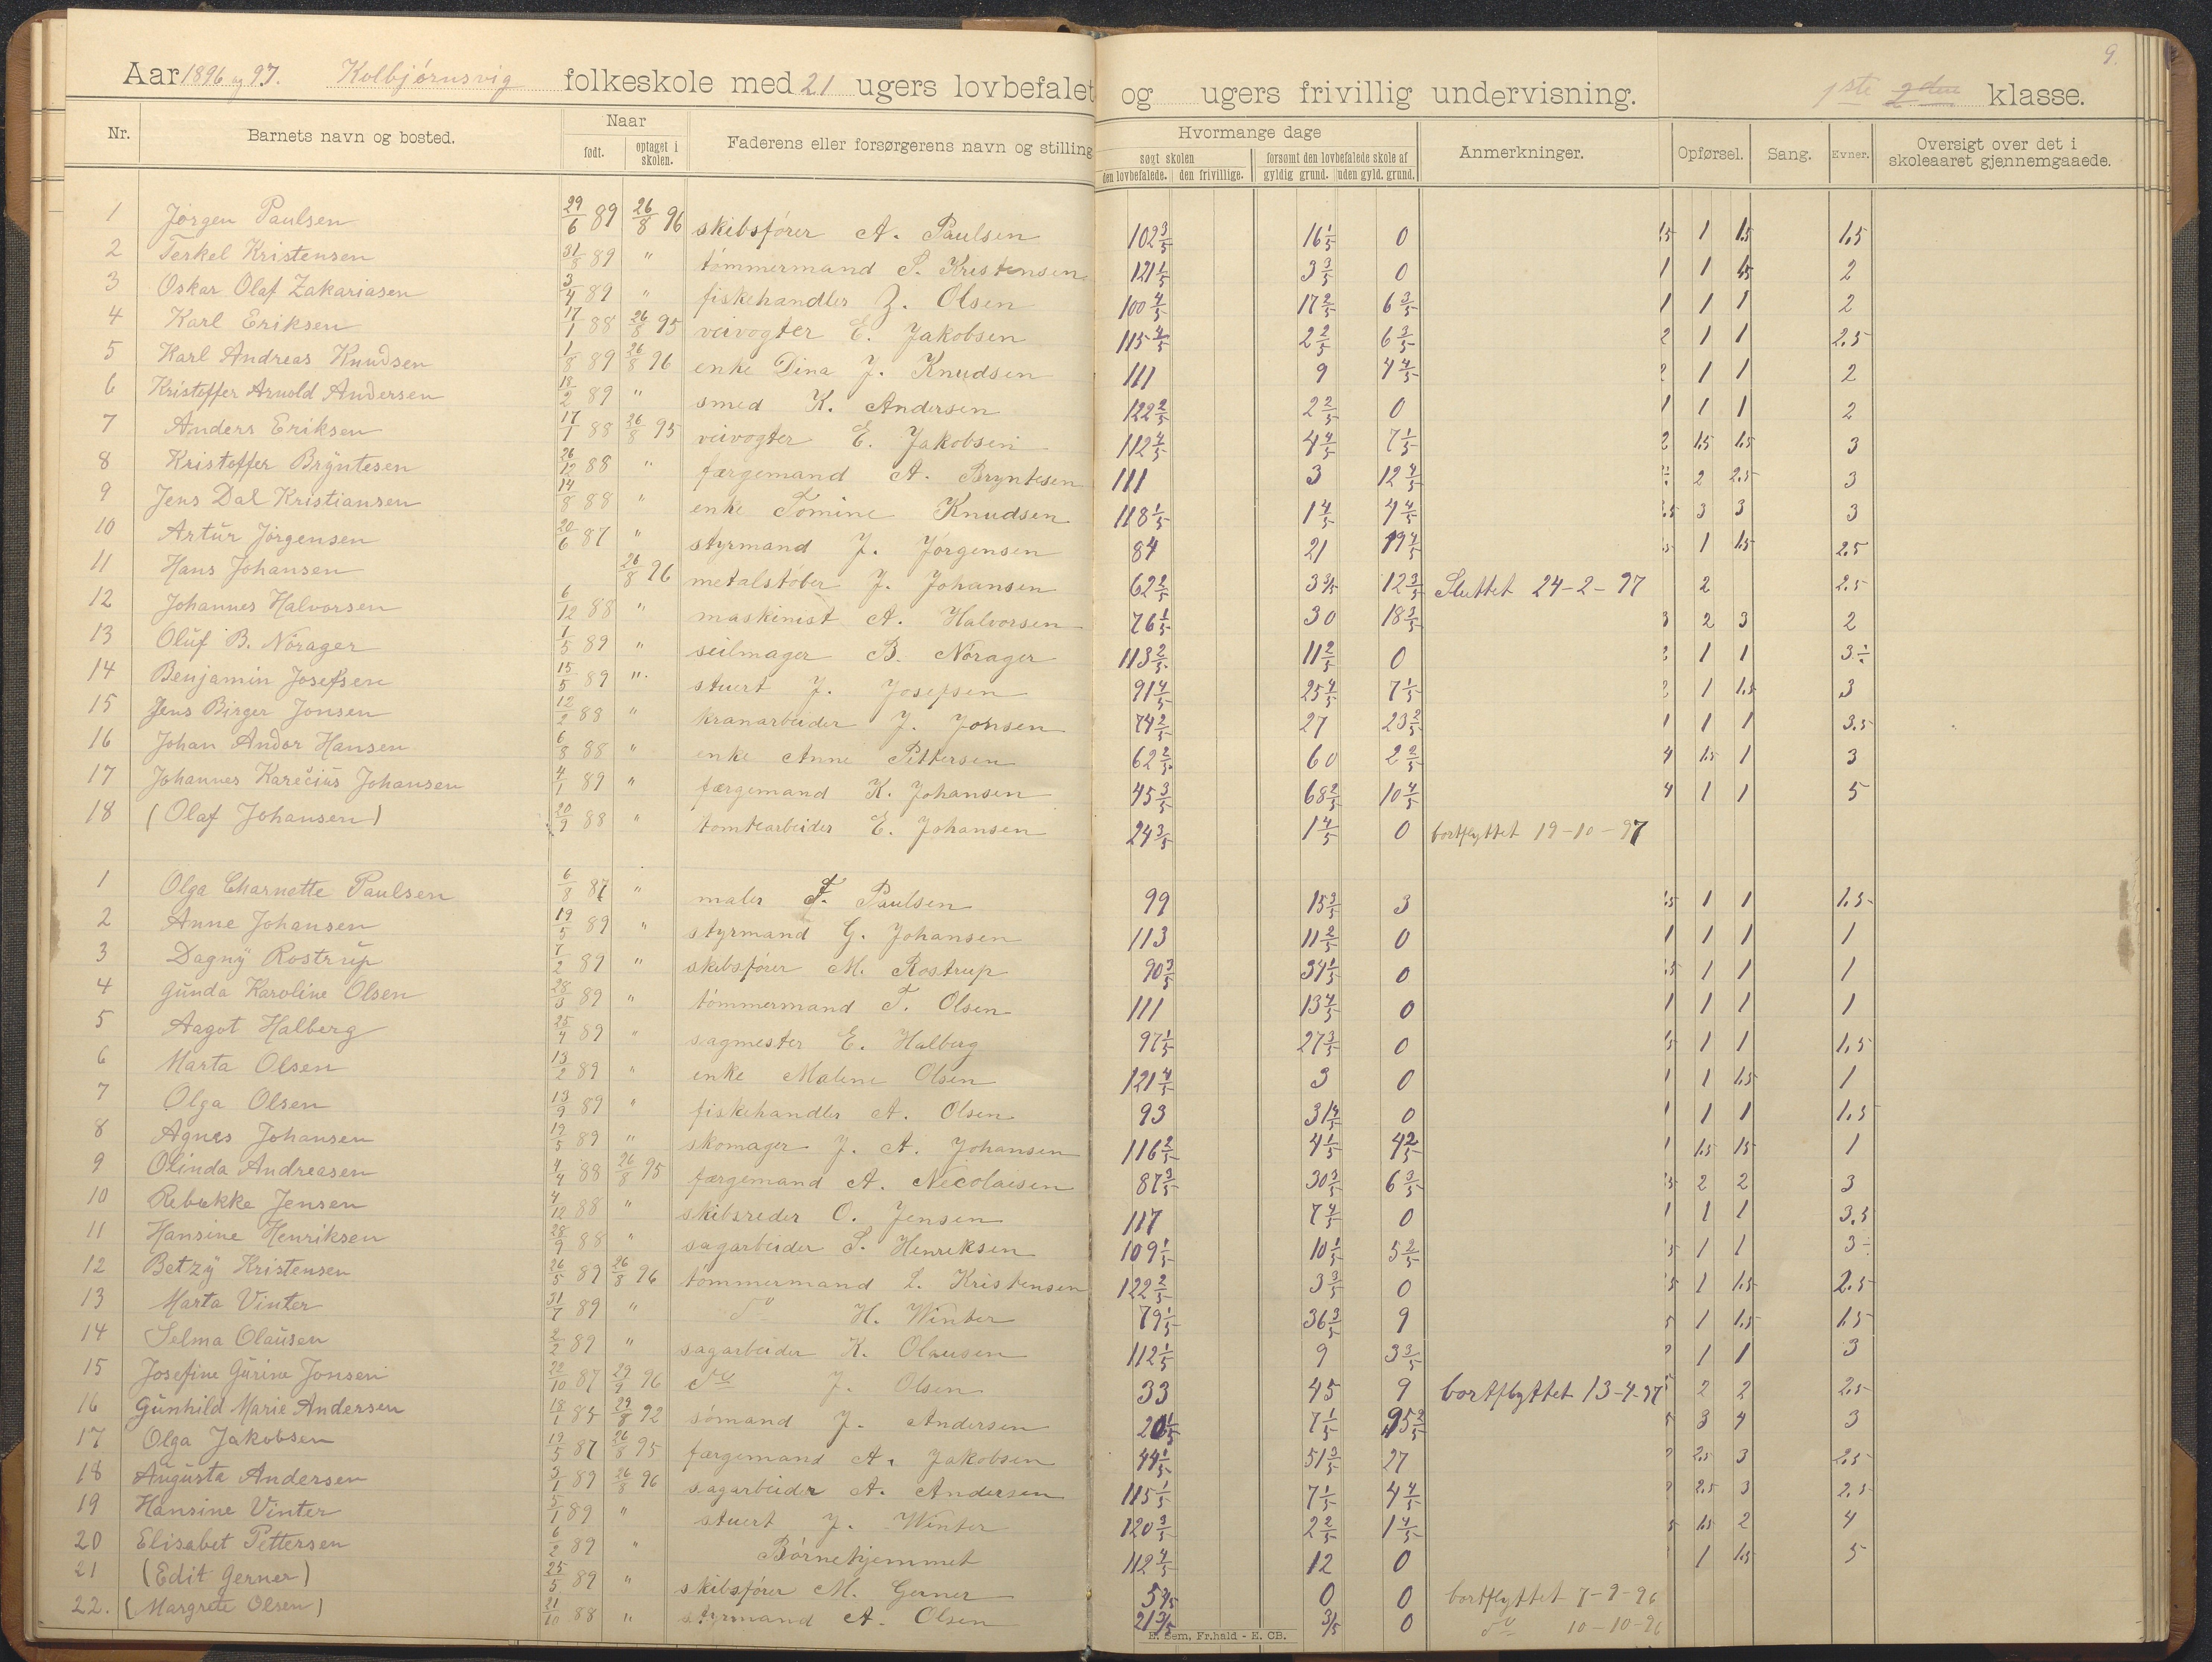 9.
Aar 1896 og 97. Kolbjørnsvig folkeskole med 21 ugers lovbefalet og ugers frivillig undervisning. 1ste 2den klasse.
Nr. Barnets navn og bosted. Naar Faderens eller forsørgerens navn og stilling Hvormange dage Anmerkninger. Opførsel. Sang. Evner. Oversigt over det i skoleaaret gjennemgaaede.
født. optaget i skolen. søgt skolen forsømt den lovbefalede skole af
den lovbefalede. den frivillige. gyldig grund. uden gyld. grund.
1 Jørgen Paulsen 29/6 89 26/8 96 skibsfører A. Paulsen 102 3/5 16 1/5 0 1,5 1 1,5 1,5
2 Terkel Kristensen 31/8 89 " tømmermand S. Kristensen 121 1/5 3 3/5 0 1 1 1,5 2
3 Oskar Olaf Zakariasen 3/4 89 " fiskehandler Z. Olsen 100 4/5 17 2/5 6 3/5 1 1 1 2
4 Karl Eriksen 17/1 88 26/8 95 veivogter E. Jakobsen 115 4/5 2 2/5 6 3/5 2 1 1 2.5
5 Karl Andreas Knudsen 1/8 89 26/8 96 enke Dina J. Knudsen 111 9 4 4/5 2 1 1 2
6 Kristoffer Arnold Andersen 18/2 89 " smed K. Andersen 122 2/5 2 2/5 0 1 1 1 2
7 Anders Eriksen 17/1 88 26/8 95 veivogter E. Jakobsen 112 4/5 4 4/5 7 1/5 2 1.5 1.5 3
8 Kristoffer Bryntesen 26/12 88 " færgemand A. Bryntesen 111 3 12 4/5 2 2.5 3
9 Jens Dal Kristiansen 14/8 88 " enke Tomine Knudsen 118 1/5 1 4/5 4 4/5 3 3 3
10 Artur Jørgensen 20/6 87 " styrmand J. Jørgensen 84 21 19 4/5 1 1.5 2.5
11 Hans Johansen 26/8 96 metalstøber J. Johansen 62 2/5 3 3/5 12 3/5 Sluttet 24-2-97 2 2.5
12 Johannes Halvorsen 6/12 88 " maskinist A. Halvorsen 76 1/5 30 18 3/5 3 2 3 2
13 Oluf B. Nørager 1/5 89 " seilmager B. Nørager 113 2/5 11 2/5 0 2 1 1 3 ÷
14 Benjamin Josefsen 15/5 89 " stuert J. Josefsen 91 4/5 25 4/5 7 1/5 2 1 1.5 3
15 Jens Birger Jonsen 12/2 88 " kranarbeider J. Jonsen 74 2/5 27 23 2/5 1 1 1 3.5
16 Johan Andor Hansen 6/8 88 " enke Anne Pettersen 62 2/5 60 2 2/5 4 1.5 1 3
17 Johannes Karecius Johansen 4/1 89 " færgemand K. Johansen 45 3/5 68 2/5 10 4/5 4 1 1 5
18 (Olaf Johansen) 20/9 88 " tomtearbeider E. Johansen 24 3/5 1 4/5 0 bortflyttet 19-10-97
1 Olga Charnette Paulsen 6/8 87 " maler F. Paulsen 99 15 3/5 3 1 1 1.5
2 Anne Johansen 19/5 89 " styrmand G. Johansen 113 11 2/5 0 1 1 1 1
3 Dagny Rostrup 7/2 89 " skibsfører M. Rostrup 90 3/5 34 1/5 0 1 1 1
4 Gunda Karoline Olsen 28/3 89 " tømmermand T. Olsen 111 13 4/5 0 1 1 1 1
5 Aagot Halberg 25/4 89 " sagmester E. Halberg 97 1/5 27 3/5 0 1 1 1,5
6 Marta Olsen 13/2 89 " enke Malene Olsen 121 4/5 3 0 1 1 1.5 1
7 Olga Olsen 13/9 89 " fiskehandler A. Olsen 93 31 4/5 0 1 1 1 1.5
8 Agnes Johansen 19/5 89 " skomager J. A. Johansen 116 2/5 4 1/5 4 2/5 1 1.5 1.5 1
9 Olinda Andreasen 4/4 88 26/8 95 færgemand A. Nicolaisen 87 3/5 30 3/5 6 3/5 2 2 3
10 Rebekke Jensen 4/12 88 " skibsreder O. Jensen 117 7 4/5 0 1 1 1 3.5
11 Hansine Henriksen 28/9 88 " sagarbeider S. Henriksen 109 1/5 10 1/5 5 2/5 1 1 3 ÷
12 Betzy Kristensen 26/5 89 26/8 96 tømmermand L. Kristensen 122 2/5 3 3/5 0 1 1.5 2.5
13 Marta Vinter 31/7 89 " do H. Winter 79 1/5 36 3/5 9 1 1.5 1.5
14 Selma Olausen 2/2 89 " sagarbeider K. Olausen 112 1/5 9 3 3/5 1 1 3
15 Josefine Gurine Jonsen 22/10 87 29/9 96 do J. Olsen 33 45 9 bortflyttet 13-4-97 2 2 2.5
16 Gunhild Marie Andersen 18/1 85 29/8 92 sømand J. Andersen 20 1/5 7 1/5 95 2/5 3 4 3
17 Olga Jakobsen 19/5 87 26/8 95 færgemand A. Jakobsen 44 1/5 51 3/5 27 2.5 3 2.5
18 Augusta Andersen 3/1 89 26/8 96 sagarbeider A. Andersen 115 1/5 7 1/5 4 4/5 2.5 3 2.5
19 Hansine Vinter 5/1 89 " stuert J. Winter 120 3/5 2 2/5 1 4/5 1.5 2 4
20 Elisabet Pettersen 6/2 89 " Børnehjemmet 112 4/5 12 0 1 1.5 5
21 (Edit Gerner) 25/5 89 " skibsfører M. Gerner 5 4/5 0 0 bortflyttet 7-9-96
22. (Margrete Olsen) 21/10 88 " styrmand A. Olsen 21 3/5 3/5 0 do 10-10-96
E. Sem, Fr.hald - E. CB.